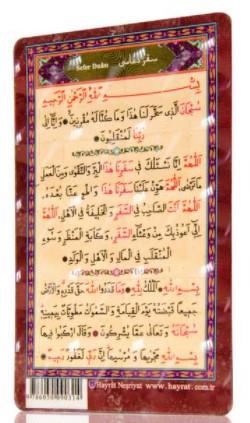 سفر دعاسى
Sefer Duâsı
بِسْمِ اللّٰهِ الرَّحْمٰنِ الرَّحِيمِ
سُبْحَانَ الَّذِي سَخَّرَ لَنَا هٰذَا وَمَا كُنَّا لَهُ مُقْرِنِينَ ❁ وَاِنَّا اِلٰى
رَبِّنَا لَمُنْقَلِبُونَ ❁
اَللّٰهُمَّ اِنَّا نَسْئَلُكَ فِي سَفَرِنَا هٰذَا الْبِرَّ وَالتَّقْوٰى وَمِنَ الْعَمَلِ
مَا تَرْضٰى اَللّٰهُمَّ هَوِّنْ عَلَيْنَا سَفَرَنَا هٰذَا وَاطْوِ عَنَّا بُعْدَهُ
اَللّٰهُمَّ اَنْتَ الصَّاحِبُ فِي السَّفَرِ وَالْخَلِيفَةُ فِي الْاَهْلِ اَللّٰهُمَّ
اِنِّي اَعُوذُ بِكَ مِنْ وَعْثَاءِ السَّفَرِ وَكَاٰبَةِ الْمَنْظَرِ وَسُوءِ
الْمُنْقَلَبِ فِي الْمَالِ وَالْاَهْلِ وَالْوَلَدِ ❁
بِسْمِ اللّٰهِ الْمَلِكِ لِلّٰهِ وَمَا قَدَرُوا اللّٰهَ حَقَّ قَدْرِهِ وَالْاَرْضُ
جَمِيعًا قَبْضَتُهُ يَوْمَ الْقِيٰمَةِ وَالسَّمٰوَاتُ مَطْوِيَّاتٌ بِيَمِينِهِ
سُبْحَانَهُ وَتَعَالٰى عَمَّا يُشْرِكُونَ ❁ وَقَالَ ارْكَبُوا فِيهَا
بِسْمِ اللّٰهِ مَجْرٰيهَا وَمُرْسٰيهَا اِنَّ رَبِّي لَغَفُورٌ رَحِيمٌ ❁
Hayrât Neşriyat www.hayrat.com.tr